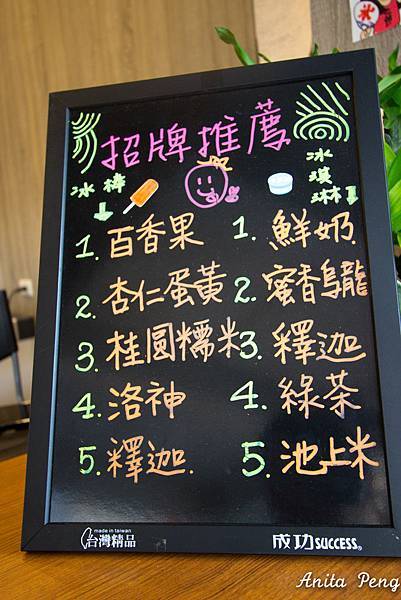 招牌推薦
冰棒
冰淇淋
1. 百香果
2. 杏仁蛋黃
3. 桂圓糯米
4. 洛神
5. 釋迦.
1. 鮮奶.
2. 蜜香烏龍
3. 釋迦
4. 綠茶
5. 池上米
made in taiwan
台灣精品
成功 SUCCESS®
Anita Peng